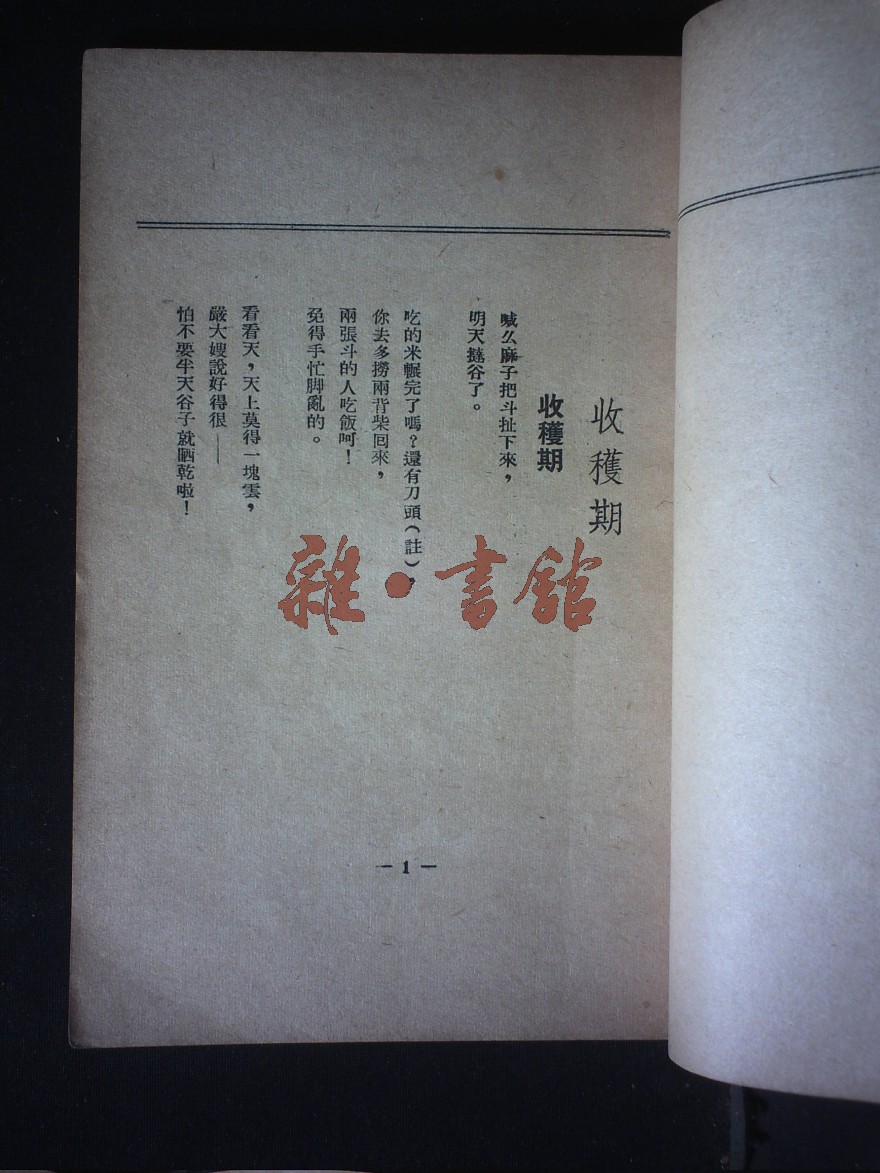 收穫期
收穫期
喊么麻子把斗扯下來，
明天撻谷了。
吃的米輾完了嗎？還有刀頭（註），
你去多撈兩背柴回來，
兩張斗的人吃飯呵！
免得手忙脚亂的。
看看天，天上莫得一塊雲，
嚴大嫂說好得很——
怕不要半天谷子就晒乾啦！
雜·書館
— 1 —